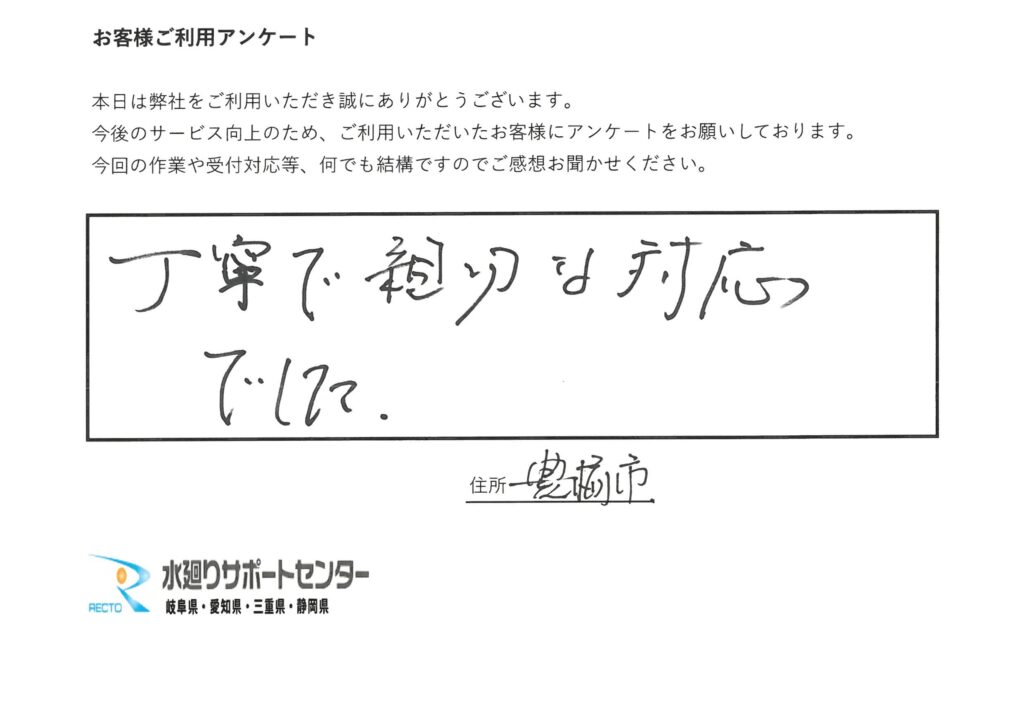 お客様ご利用アンケート
本日は弊社をご利用いただき誠にありがとうございます。
今後のサービス向上のため、ご利用いただいたお客様にアンケートをお願いしております。
今回の作業や受付対応等、何でも結構ですのでご感想お聞かせください。
丁寧で親切な対応
でした.
住所 豊橋市
RECTO
水廻りサポートセンター
岐阜県・愛知県・三重県・静岡県